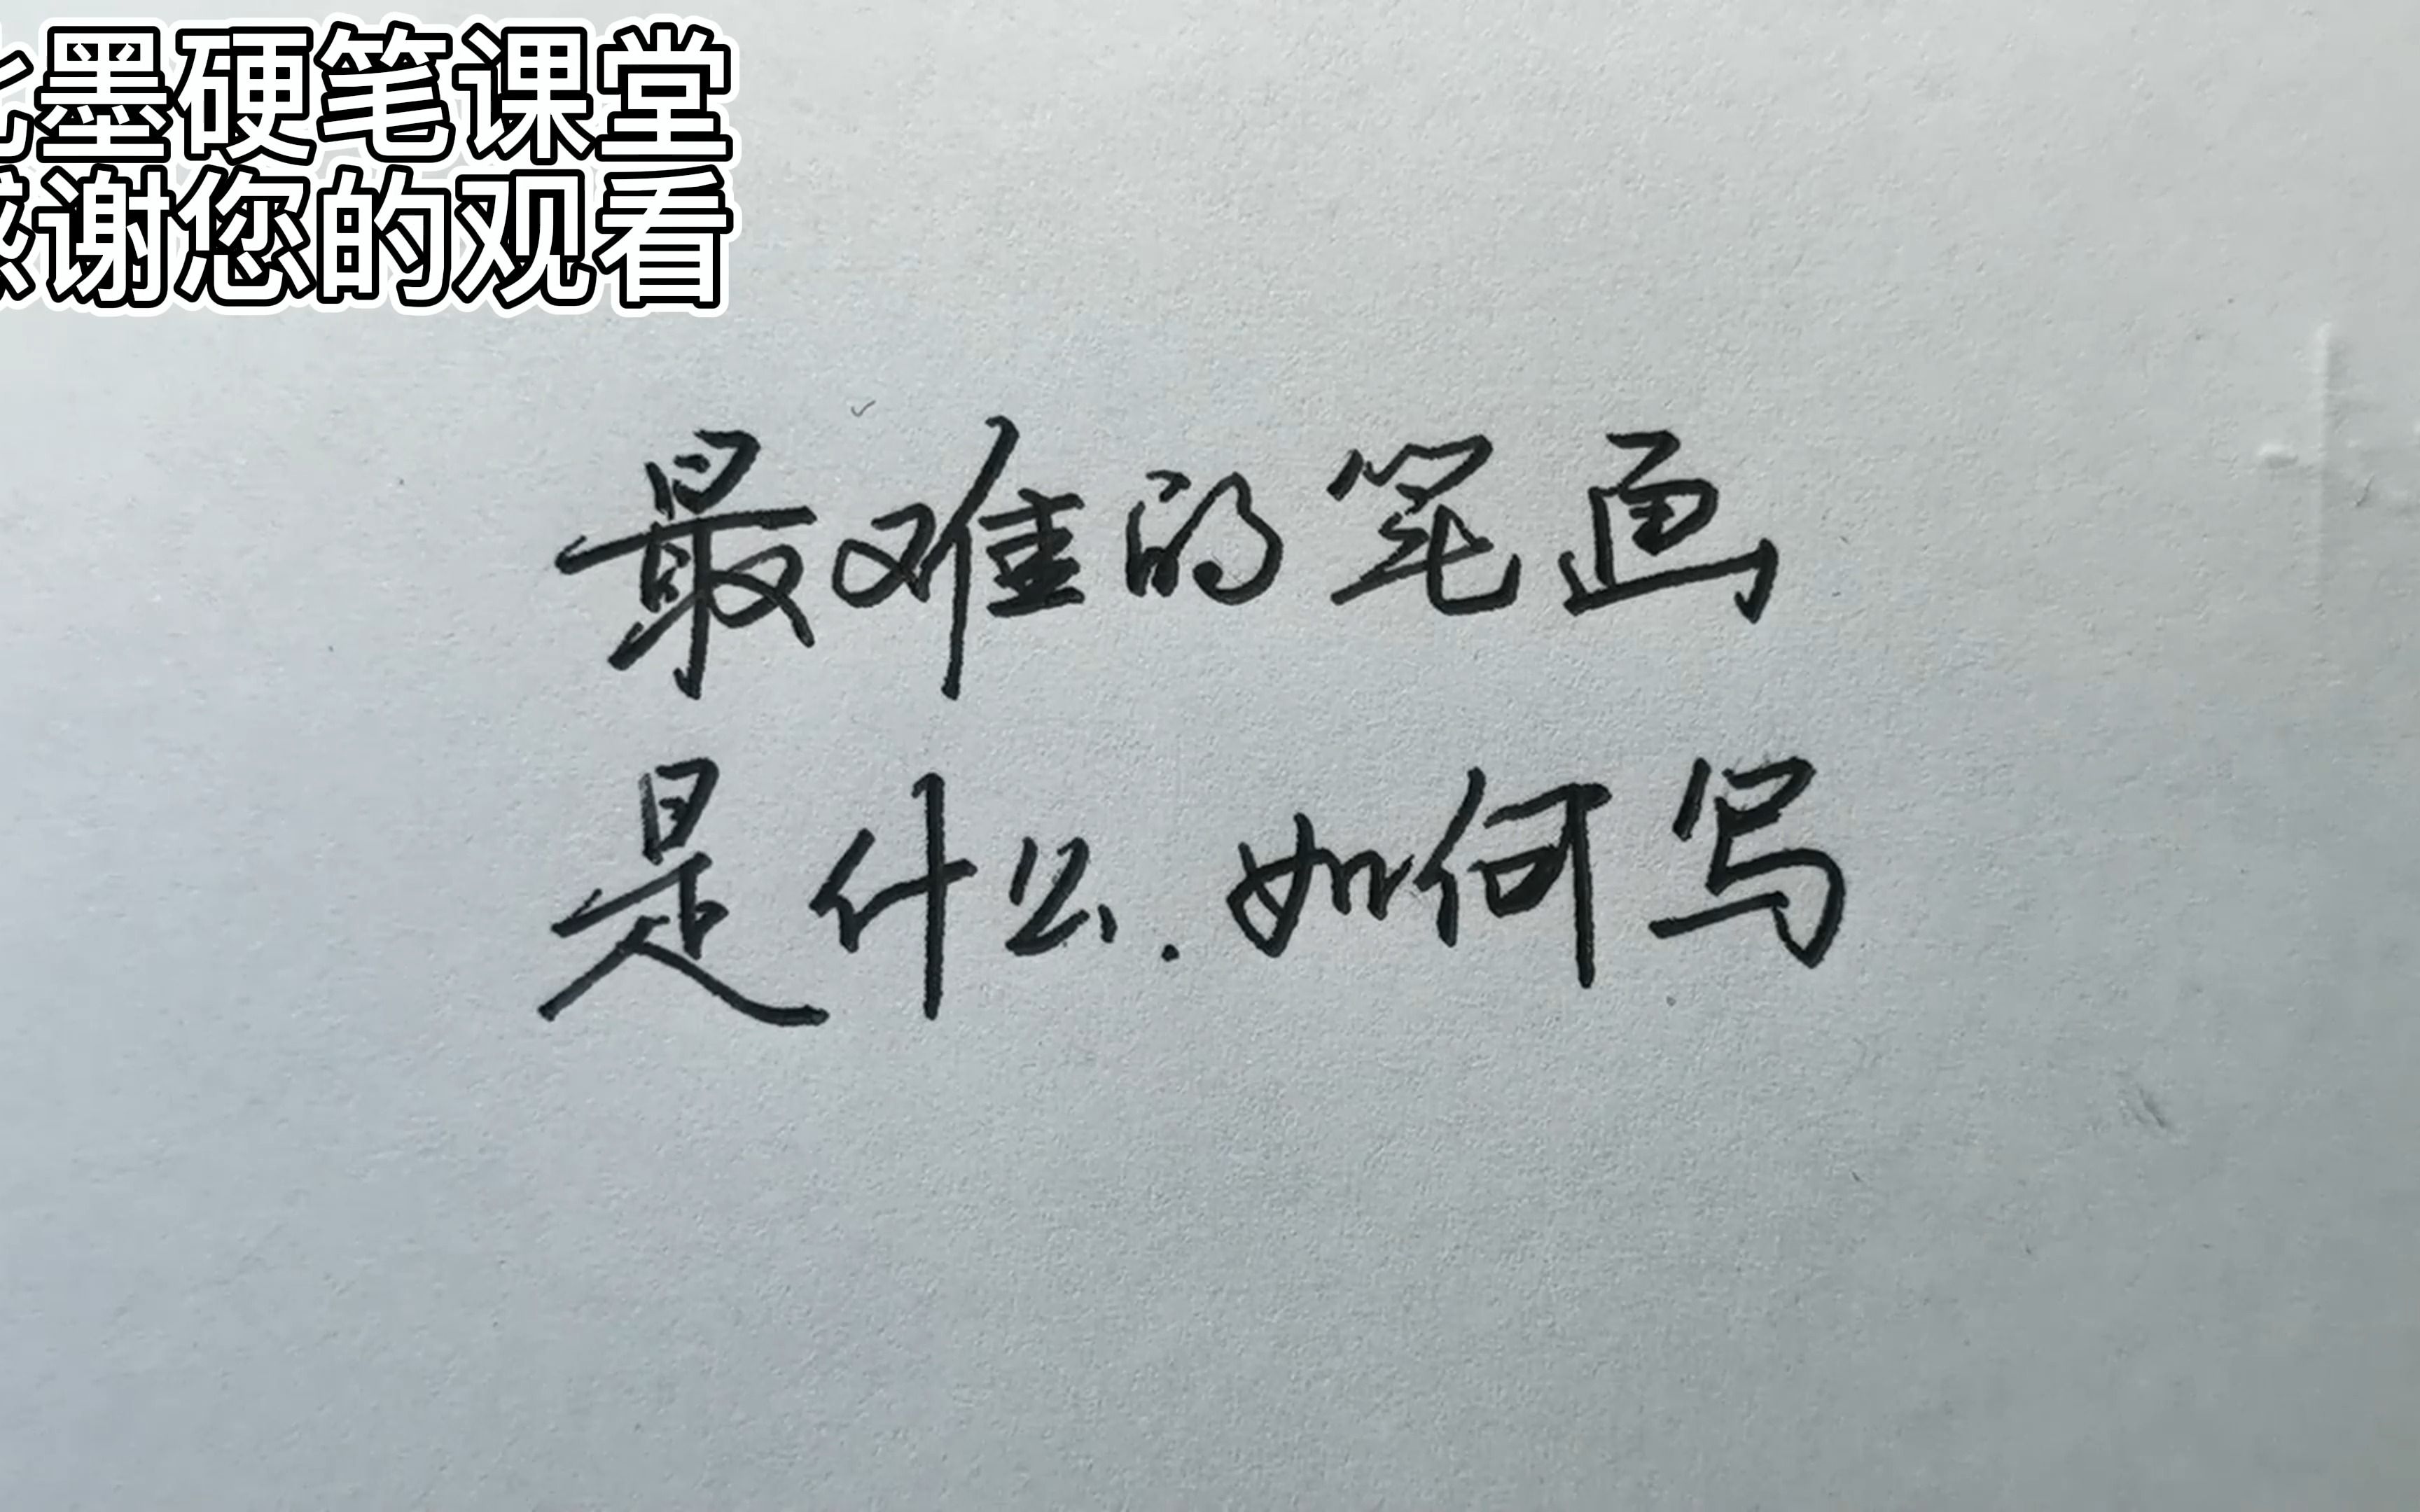 墨硬笔课堂
感谢您的观看
最难的笔画
是什么.如何写